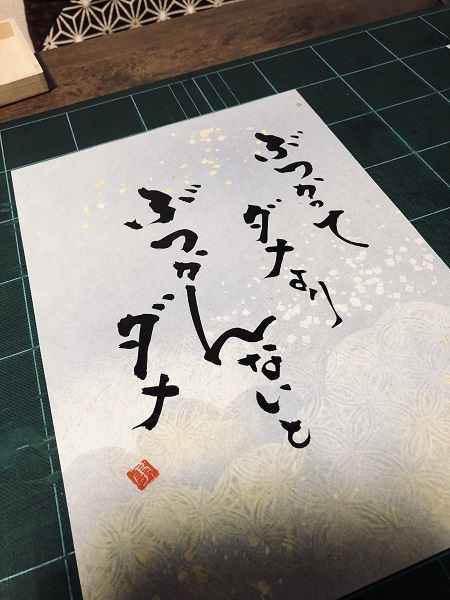 ぶつかって
ダナ
ぶつかんないも
ダナ